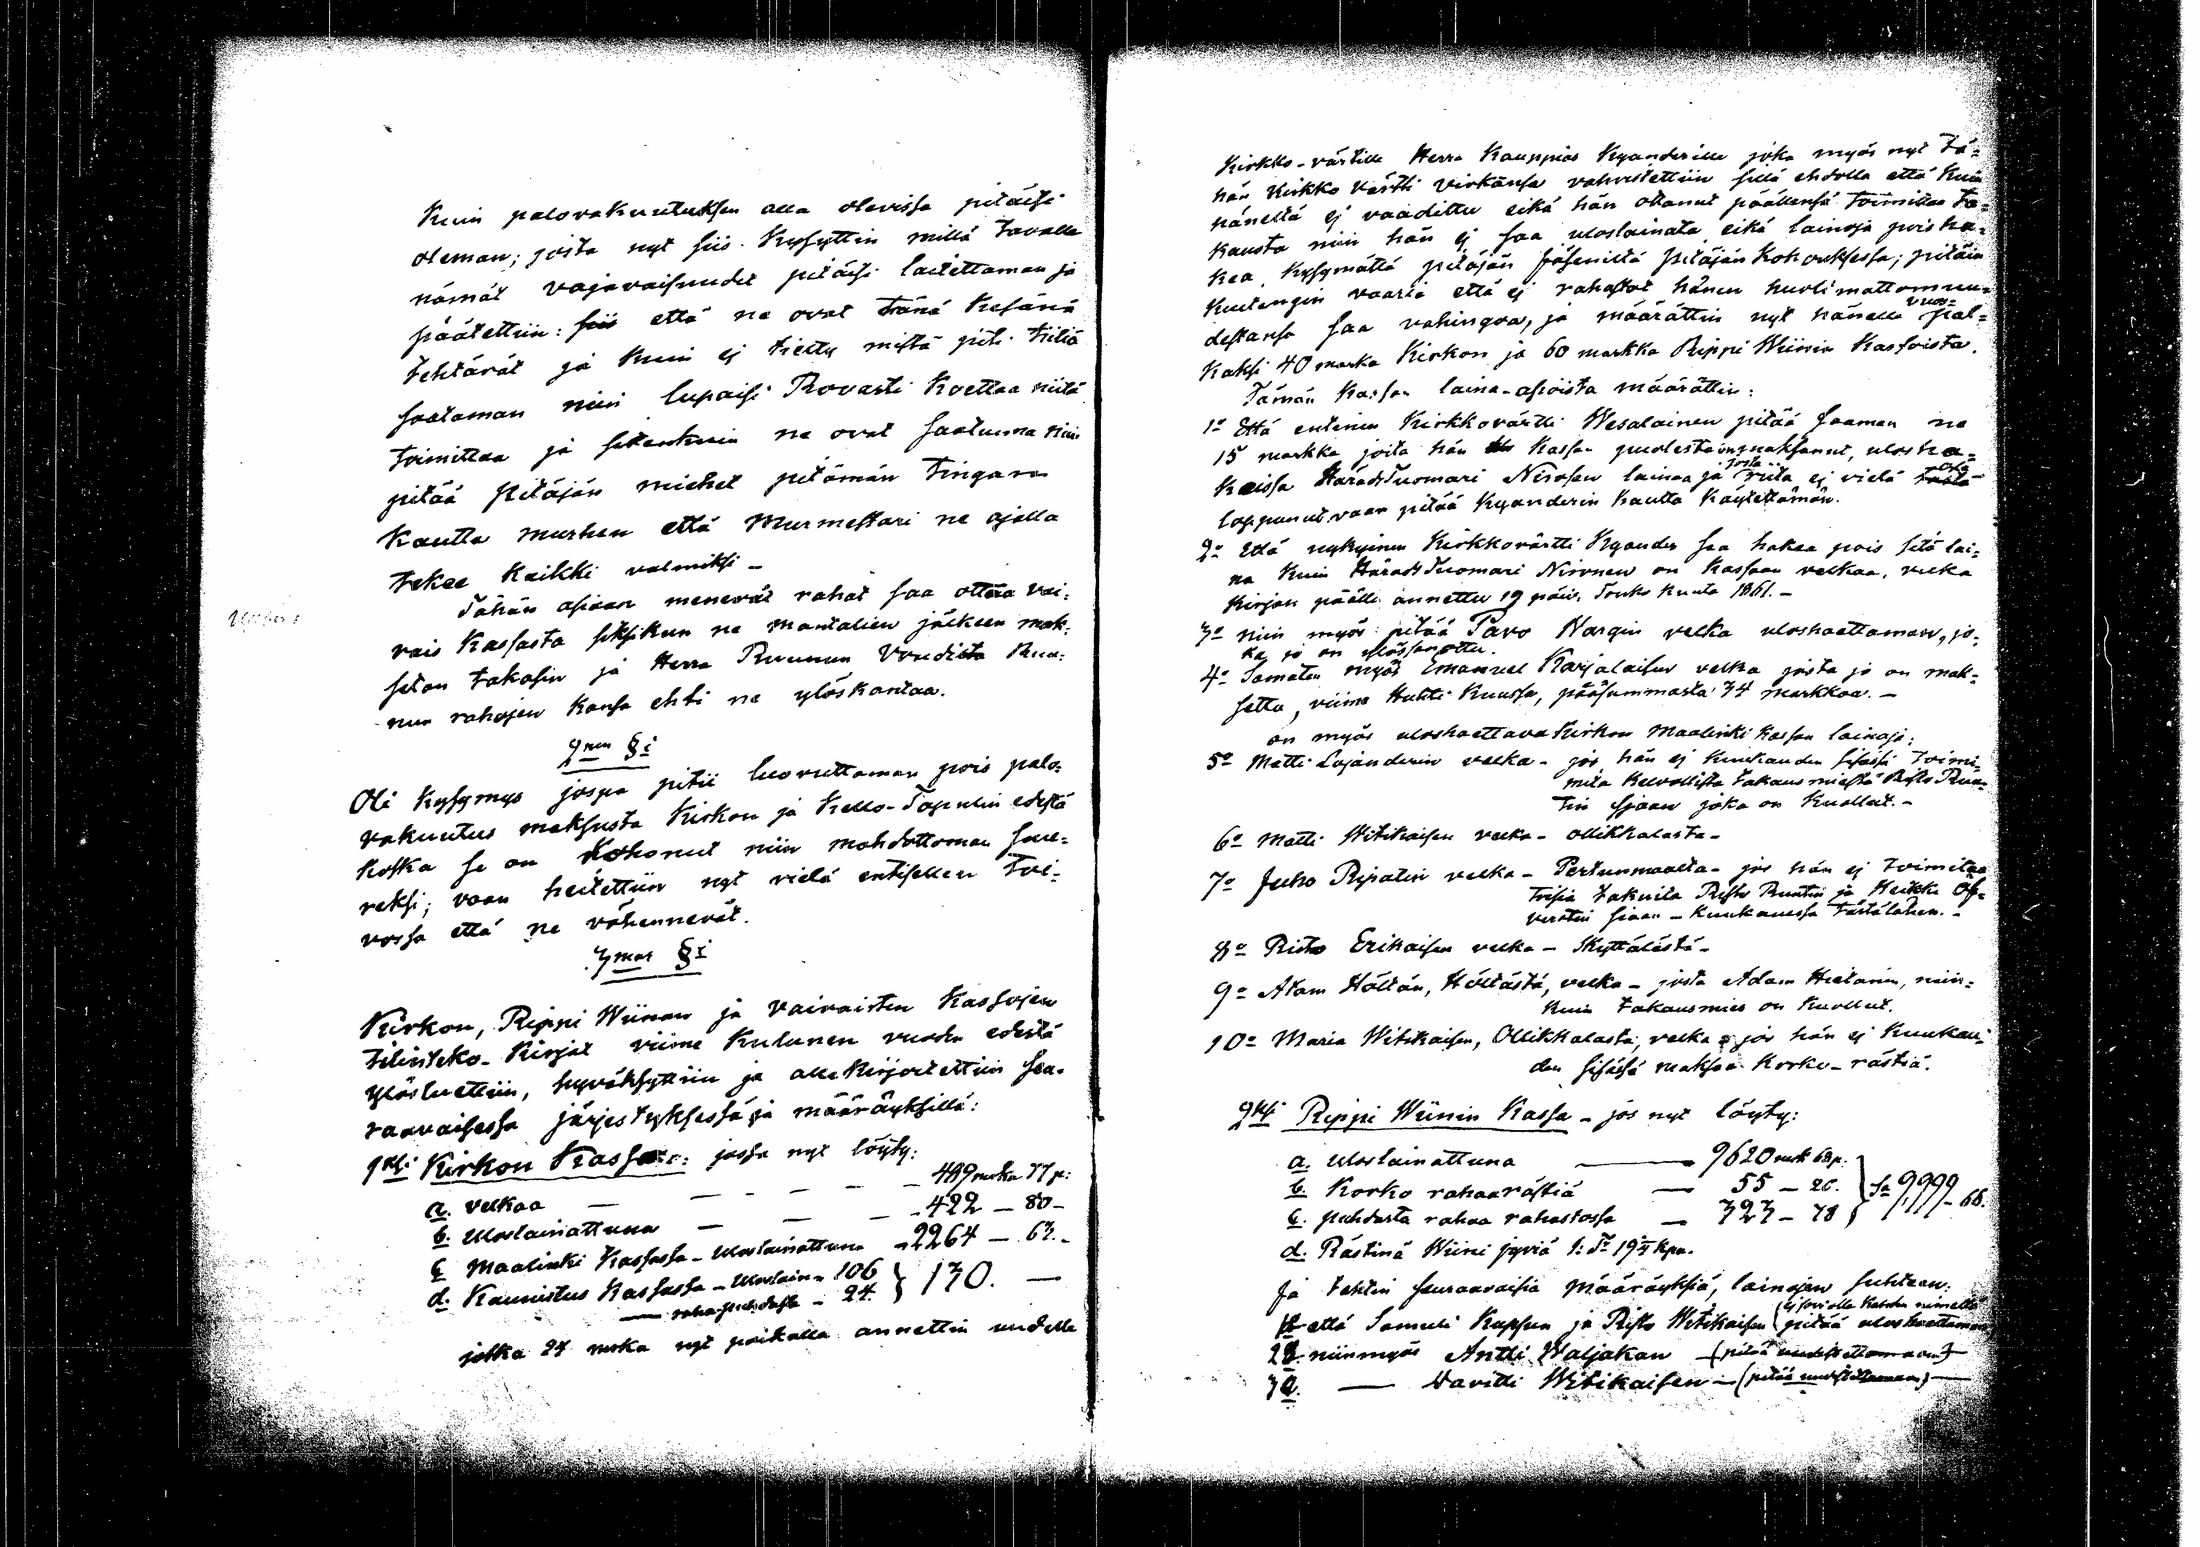 Kuin palovakuutuksen alla olevissa pitäisi
oleman; josta nyt siis kysyttiin millä tavalla
nämät vajavaisuudet pitäisi laitettaman ja
päätettiin: siis että ne ovat tänä kesänä
tehtävät ja kuin ej tietty mistä piti tiiliä
saataman niin lupaisi Rovasti koettaa niitä
toimittaa ja sittenkuin ne ovat saatunna niin
pitää Pitäjän miehet pitämän Tingan
kautta murhen että Murmestari ne ajalla
tekee kaikki valmiiksi –
Tähän asiaan menevät rahat saa ottaa Vai-
vais Kassasta siksikun ne mantalien jälkeen mak-
setan takasin ja Herra Ruunun Voudista Ruu-
nun rahojen kansa ehti ne ylöskantaa.
2nen §i
Oli kysymys jospa pitii luovuttaman pois palo-
vakuutus maksusta Kirkon ja Kello-Tapulin edestä
koska se on kohonut niin mahdottoman suu-
reksi; vaan heitettiin nyt vielä entisellen toi-
vossa että ne vähennevät.
3mas §i
Kirkon, Rippi Wiinan ja Vaivaisten Kassojen
tilinteko-kirjat viime kulunen vuoden edestä
ylösluettiin, hyväksyttiin ja allekirjoitettiin seu-
raavaisessa järjestyksessä ja määräyksillä:
1ksi Kirkon Kassa: jossa nyt löyty:
a. Velkaa — 489 markka 77 p:
b. Uloslainattuna — 422 – 80 –
c Maalinki Kassassa – Uloslainattuna – 2264 – 63. –
d. Kaunistus Kassassa – Uloslain. – 106 } 130. —
— raha puhdasta – 24.
jotka 24 marka nyt paikalla annettiin uudelle
Kirkko-värtille Herra Kauppias Kyanderille joka myös nyt tä-
hän Kirkko värtti virkänsä vahvistettiin sillä ehdolla että kuin
häneltä ej vaadittu eikä hän ottanut päällensä toimittaa ta-
kausta niin hän ej saa uloslainata eikä lainoja pois ha-
kea kysymättä pitäjän jäseniltä Pitäjänkokouksessa; pitäin
kuitengin vaaria että ej rahastot hänen huolimattomuu-
destansa saa vahingoa, ja määrättiin nyt hänelle vuos-pal-
kaksi 40 marka Kirkon ja 60 markka Rippi Wiinin Kassoista.
Tämän Kassan laina-asioista määrättiin:
1o Että entinen Kirkkovärtti Wesalainen pitää saaman ne
15 markka joita hän Kassan puolesta ongmaksanut, ulosha-
keissa Härads Tuomari Nirosen lainaa ja josta riita ej vielä ole
loppunut vaan pitää Kyanderin kautta käytettämän.
2o Että nykyinen Kirkkovärtti Kyander saa hakea pois sitä lai-
na kuin Härads Tuomari Nironen on Kassaan velkaa, velka
kirjan päälle annettu 19 päiv. Touko kuuta 1861. –
3o niin myös pitää Pavo Nargin velka uloshaettaman, jo-
ka jo on ylössanottu.
4o Samaten myös Emanuel Karjalaisen velka josta jo on mak-
settu, viime Huhti kuussa, pääsummasta 34 markkaa. –
on myös uloshaettava Kirkon Maalinki Kassan lainoja;
5o Matti Lojanderin velka – jos hän ej kuukauden sisässä toimi-
mita kelvollista takausmiestä Risto Ruu-
tin sijaan joka on kuollut. –
6o Matti Witikaisen velka – Ollikkalasta –
7o Juho Ripatin velka – Pertunmaalta – jos hän ej toimitaa
toisia takuita Risto Ruutin ja Heikki Of-
verstin siaan – kuukauessa tästälähen. –
8o Risto Erikaisen velka – Skyttälästä –
9o Atam Höltän, Höltästä, velka – josta Adam Hietanin, niin-
kuin takausmies on kuollut.
10o Maria Witikaisen, Ollikkalasta, velka – jos hän ej kuukau-
den sisässä maksaa korko-rästiä.
2ksi Rippi Wiinin Kassa – jos nyt löyty:
a. Uloslainattuna — 9620 mrk 68 p.
b. Korko rahaarästiä — 55 – 20. } Sa 9,999 – 66.
c. puhdasta rahaa rahastossa — 323 – 78
d. Rästinä Wiini jyviä 1: T 19 kpa.
Ja tehtiin seuraavaisia määräyksiä, lainojen suhteen:
1o että Samuli Kupsun ja Risto Witikaisen (ej voi olla kahden nimellä pitää uloshaettaman
2o niinmyös Antti Waljakan – (pitää uudistettamaan) –
3o — Davitti Witikaisen – (pitää uudistettaman) –